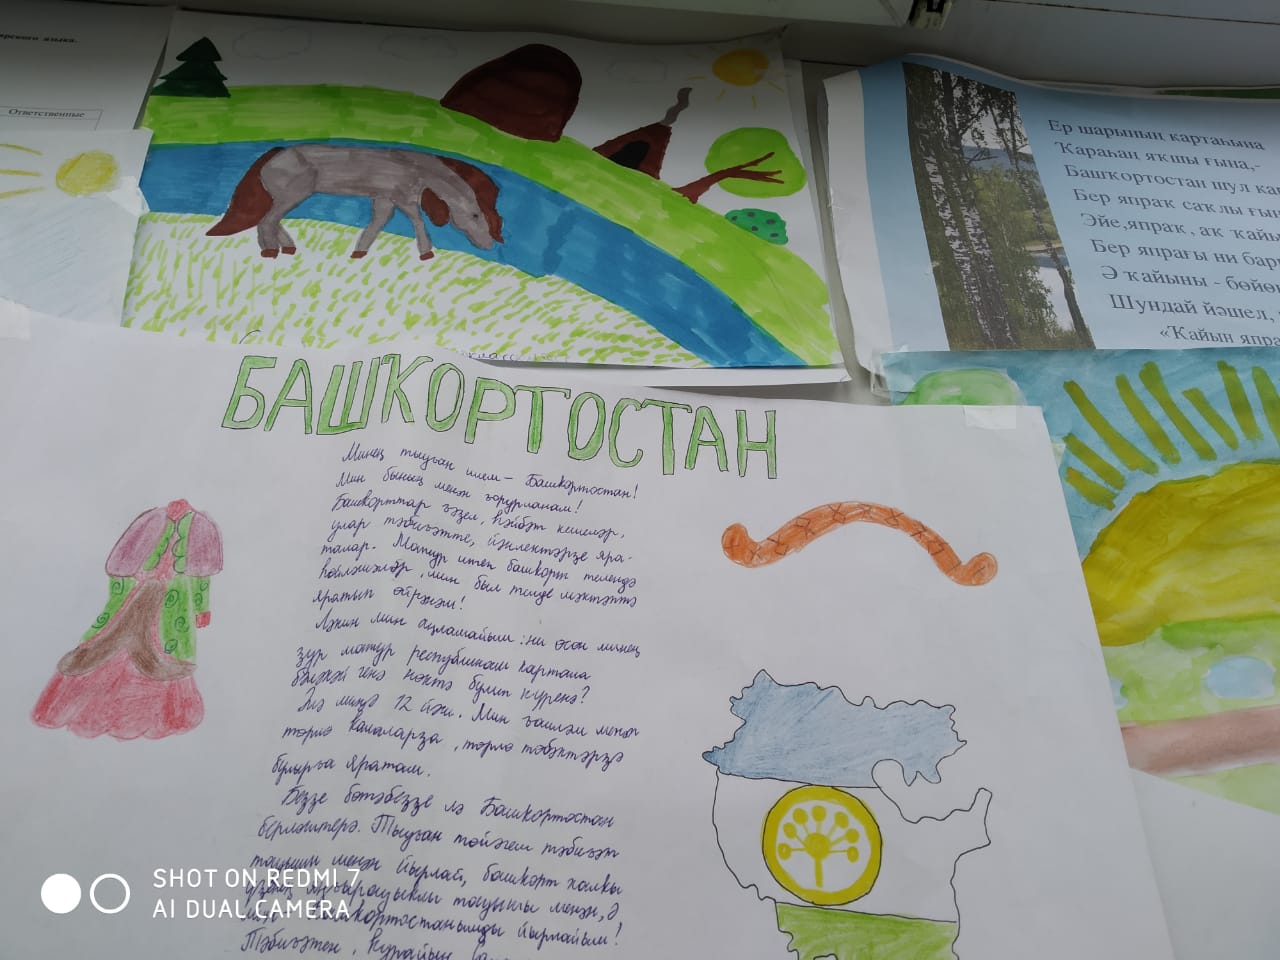 ярского языка.
Ответственные
Ер шарының картаһына
Ҡараһаң яҡшы ғына,-
Башҡортостан шул
Бер япраҡ саҡлы
Эйе, япраҡ, аҡ
Бер япрағы ни
Ә ҡайыны -
Шундай йәшел,
«Ҡайын
класс
БАШҠОРТОСТАН
Минең тыуған илем – Башҡортостан!
Мин бының менән ғорурланам!
Башҡорттар ғәзел, һәйбәт кешеләр,
улар тәбиғәтте, йәнлектәрҙе яра-
талар. Матур итеп башҡорт телендә
һөйләшәләр, мин был телде мәктәптә
яратып өйрәнәм!
Ләкин мин аңламайым: ни өсөн минең
ҙур матур республикам картала
бәләкәй генә нөктә булып күренә?
Әле миңә 12 йәш. Мин ғаиләм менән
төрлө ҡалаларҙа, төрлө төбәктәрҙә
булырға яратам.
Беҙҙе бөтәбеҙҙе лә Башҡортостан
берләштерә. Тыуған төйәгем тәбиғәт
тауышы менән йырлай, башҡорт халҡы
үҙенең яңғырауыҡлы тауышы менән, ә
Башҡортостанымды йырлайым!
Тәбиғәтең, ҡурайың
SHOT ON REDMI 7
AI DUAL CAMERA